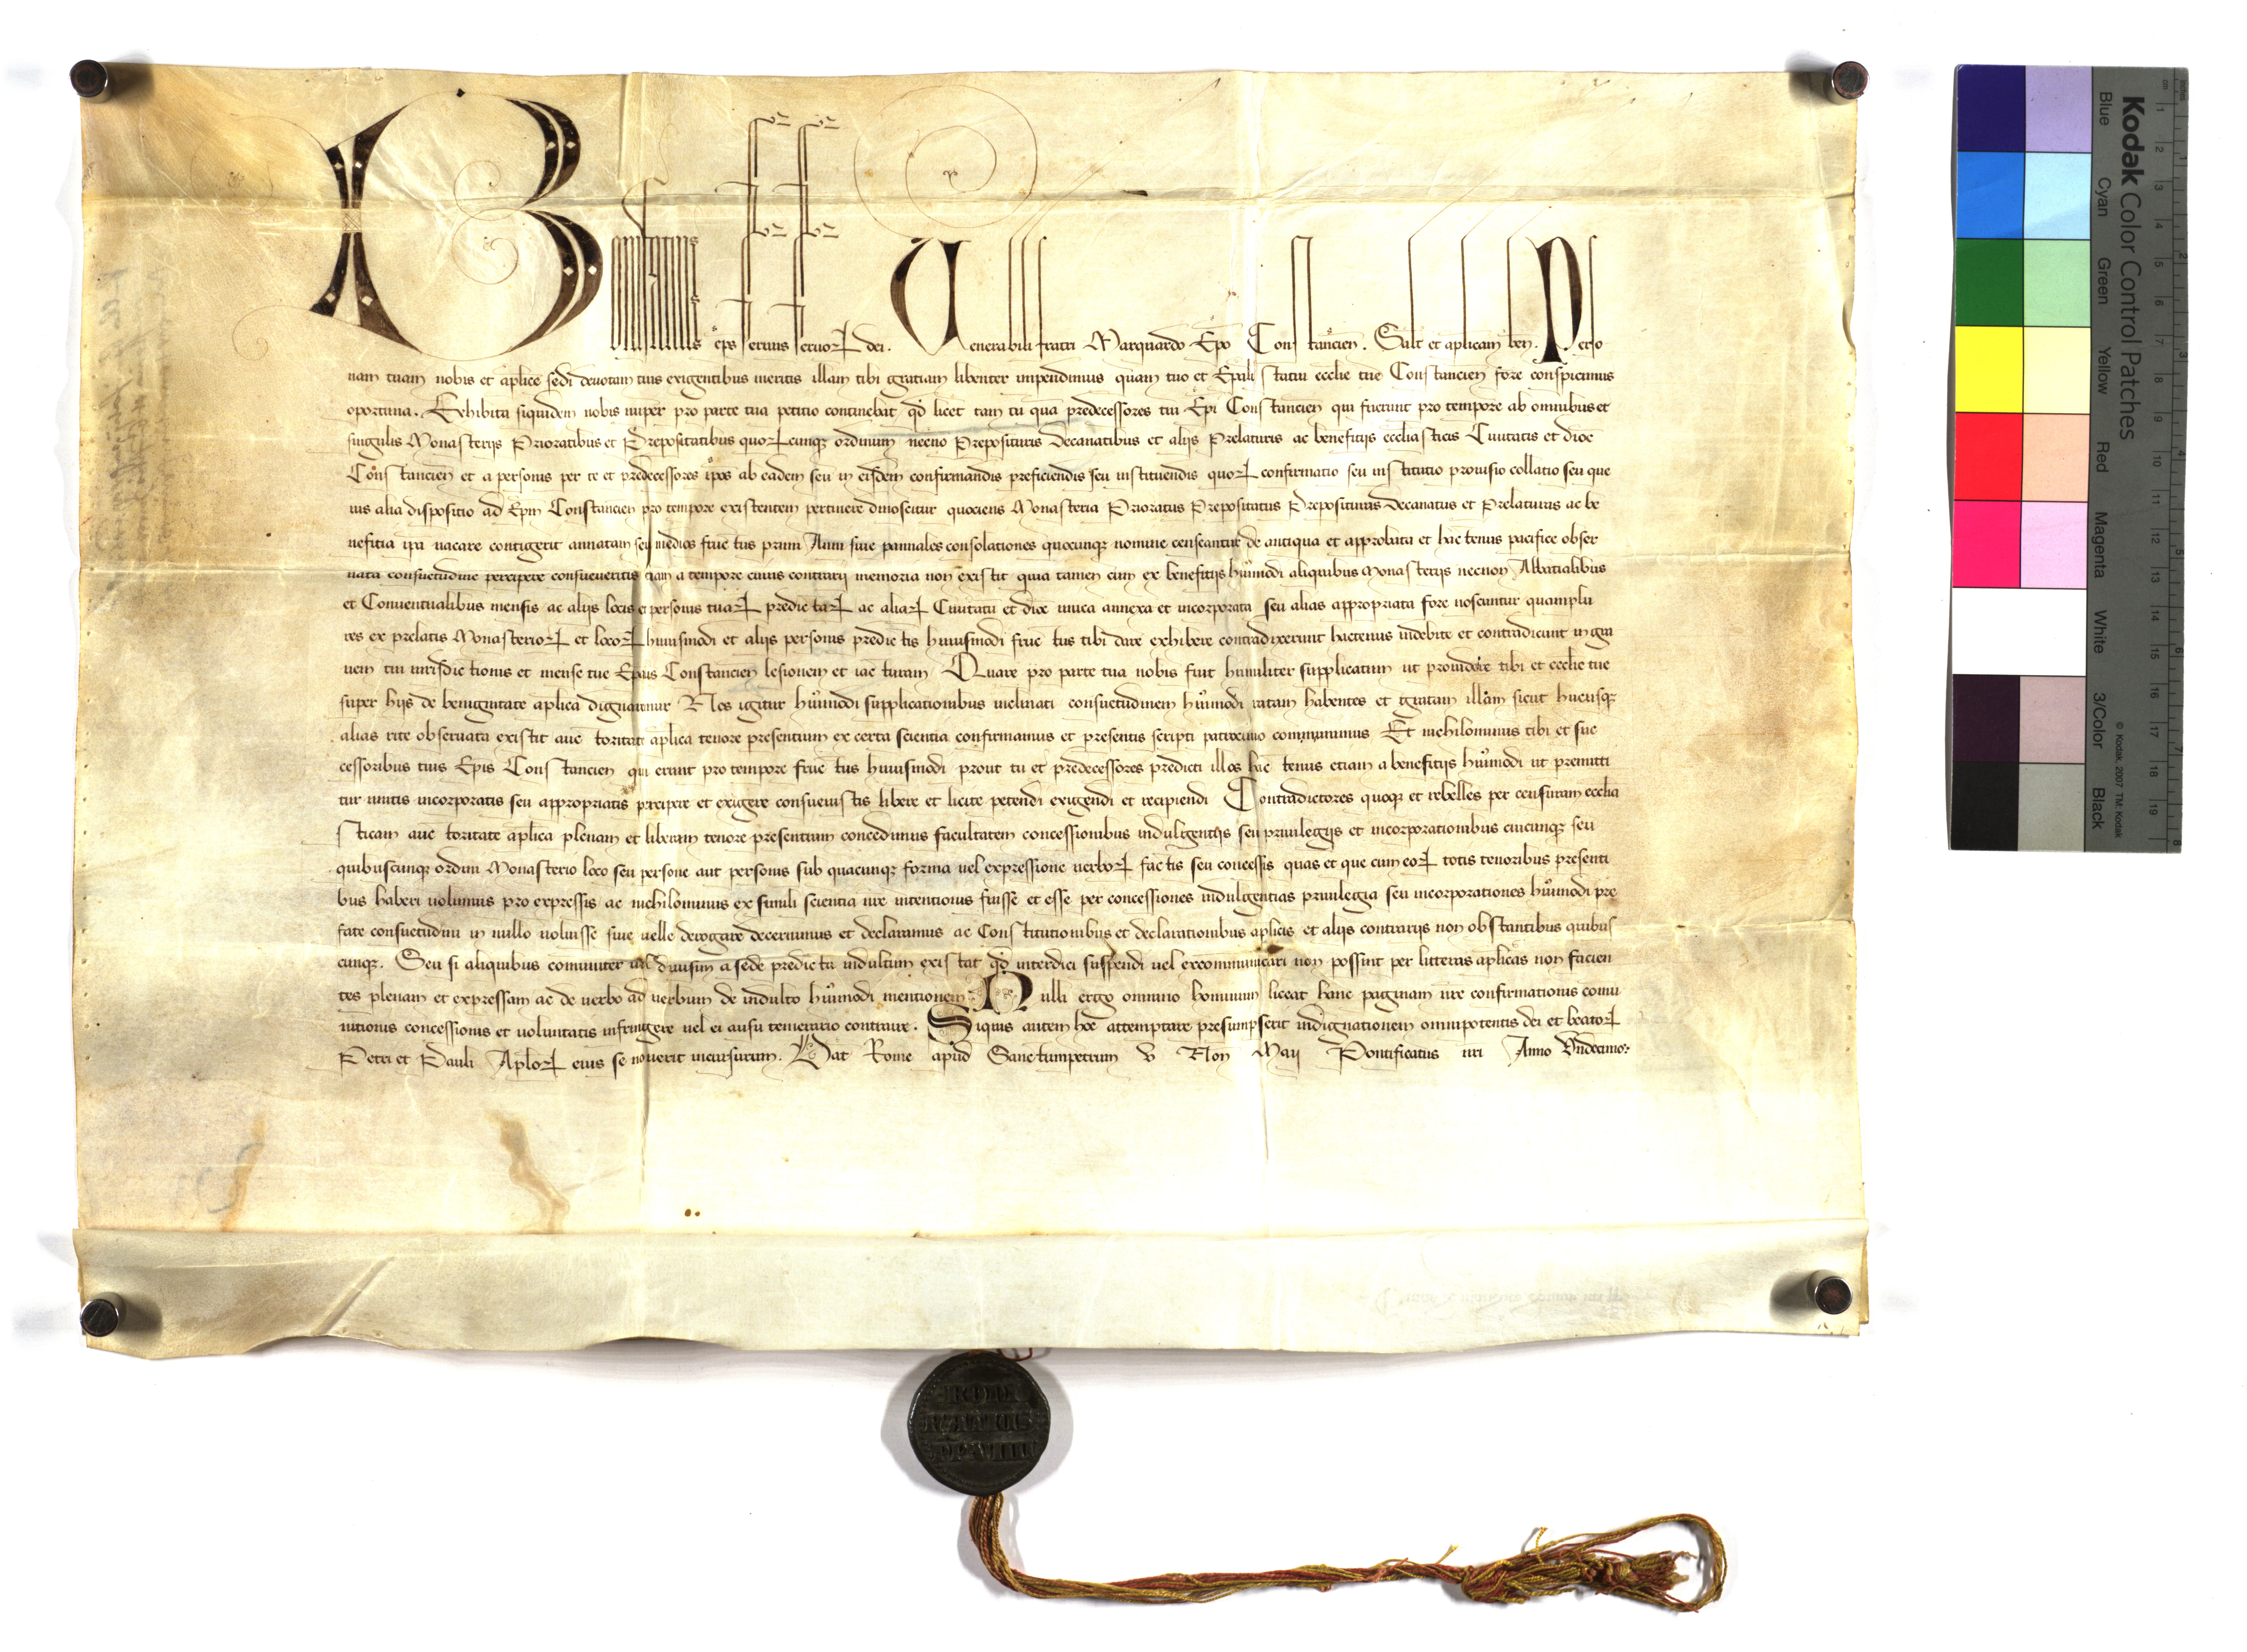 Bonifatius eps seruus seruoꝝ dei. Venerabili fratri Marquardo Epo Constancien. Salt et aplicam ben. Perso
nam tuam nobis et aplice sedi deuotam tuis exigentibus meritis illam tibi gratiam libenter impendimus quam tuo et Epali statui ecclie tue Constancien fore conspicimus
oportuna. Exhibita siquidem nobis nuper pro parte tua petitio continebat qd licet tam tu qua predecessores tui Epi Constancien qui fuerunt pro tempore ab omnibus et
singulis Monasterijs Prioratibus et Prepositatibus quoꝝcunqꝫ ordinum necno Preposituris Decanatibus et alijs Prelaturis ac benefitijs ecclesiasticis Ciuitatis et dioc
Constancien et a personis per te et predecessores ipos ab eadem seu in eisdem confirmandis preficiendis seu instituendis quoꝝ confirmatio seu institutio prouisio collatio seu que
uis alia dispositio ad Epm Constancien pro tempore existentem pertinere dinoscitur quociens Monasteria Prioratus Prepositatus Preposituras Decanatus et Prelaturas ac be
nefitia ipa uacare contigerit annatam seu medios fructus primi Anni siue pannales consolationes quocunqꝫ nomine censeantur de antiqua et approbata et hactenus pacifice obser
uata consuetudine percipere consueueritis etiam a tempore cuius contrarii memoria non existit quia tamen cum ex benefitijs huiusmodi aliquibus Monasterijs necnon Abbatialibus
et Conuentualibus mensis ac alijs locis et personis tuaꝝ predictaꝝ ac aliaꝝ Ciuitatu et dioc unita annexa et incorporata seu alias appropriata fore noscuntur quamplu
res ex prelatis Monasterioꝝ et locoꝝ huiusmodi et alijs personis predictis huiusmodi fructus tibi dare exhibere contradixerunt hactenus indebite et contradicunt in gra
uem tui iurisdictionis et mense tue Epalis Constancien lesionem et iacturam Quare pro parte tua nobis fuit humiliter supplicatum ut prouidere tibi et ecclie tue
super hijs de benignitate aplica dignaremur Nos igitur huiusmodi supplicationibus inclinati consuetudinem huiusmodi ratam habentes et gratam illam sicut hucusqꝫ
alias rite obseruata existit auctoritate aplica tenore presentium ex certa scientia confirmamus et presentis scripti patrocinio communimus Et nichilominus tibi et suc
cessoribus tuis Epis Constancien qui erunt pro tempore fructus huiusmodi prout tu et predecessores predicti illos hactenus etiam a benefitijs huiusmodi ut premitti
tur unitis incorporatis seu appropriatis percipere et exigere consueuistis libere et licite petendi exigendi et recipiendi Contradictores quoqꝫ et rebelles per censuram ecclia
sticam auctoritate aplica plenam et liberam tenore presentium concedimus facultatem concessionibus indulgentijs seu priuilegijs et incorporationibus cuicunqꝫ seu
quibuscunqꝫ ordini Monasterio loco seu persone aut personis sub quacunqꝫ forma uel expressione uerboꝝ factis seu concessis quas et que cum eoꝝ totis tenoribus presenti
bus haberi uolumus pro expressis ac nichilominus ex simili scientia nre intentionis fuisse et esse per concessiones indulgentias priuilegia seu incorporationes huiusmodi pre
fate consuetudini in nullo uoluisse siue uelle derogare decernimus et declaramus ac Constitutionibus et declarationibus aplicis et alijs contrarijs non obstantibus quibus
cunqꝫ. Seu si aliquibus comuniter uel diuisim a sede predicta indultum existat qd interdici suspendi uel excommunicari non possint per litteras aplicas non facien
tes plenam et expressam ac de uerbo ad uerbum de indulto huiusmodi mentionem. Nulli ergo omnino hominum liceat hanc paginam nre confirmationis comu
nitionis concessionis et uoluntatis infringere uel ei ausu temerario contraire. Siquis autem hoc attemptare presumpserit indignationem omnipotentis dei et beatoꝝ
Petri et Pauli Aploꝝ eius se nouerit incursurum. Dat Rome apud Sanctumpetrum v Non Maii Pontificatus nri Anno Vndecimo
BONI
FATIUS
PP VIIII
Kodak Color Control Patches
Blue Cyan Green Yellow Red Magenta White 3/Color Black
© Kodak, 2007 TM: Kodak
cm 1 2 3 4 5 6 7 8 9 10 11 12 13 14 15 16 17 18 19
inches 1 2 3 4 5 6 7 8